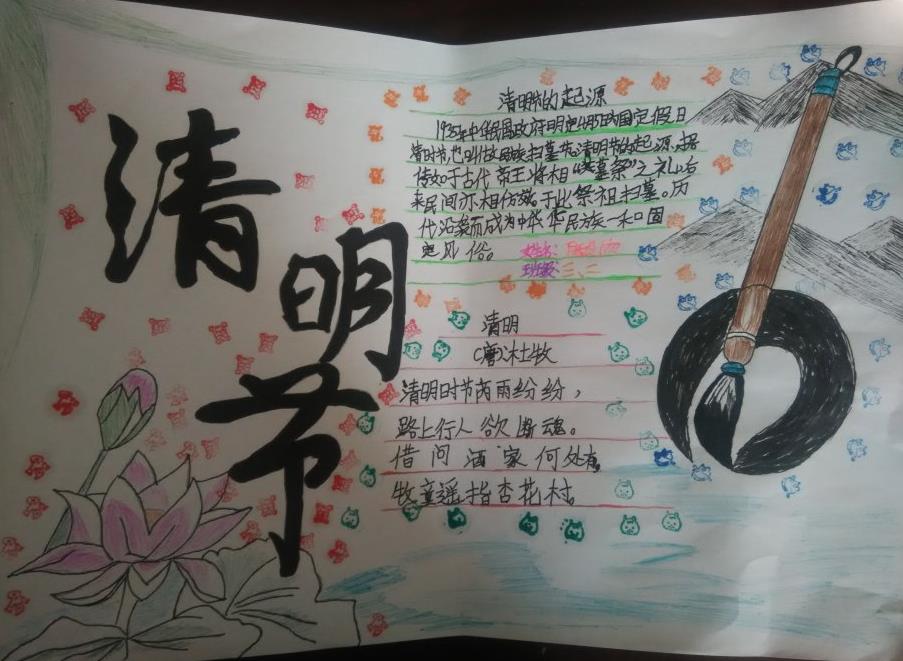 清明节
清明节的起源
1935年中华民国政府明定4月5日国定假日
清时节,也叫做民族扫墓节,清明节的起源,据
传如于古代帝王将相“大墓祭”之礼,后
来民间亦相仿效。于此祭祖扫墓。历
代沿袭而成为中华华民族一种固
定风俗。 姓名:
班级:三、二
清明
(唐)杜牧
清明时节芮雨纷纷,
路上行人欲断魂。
借问酒家何处有,
牧童遥指杏花村。